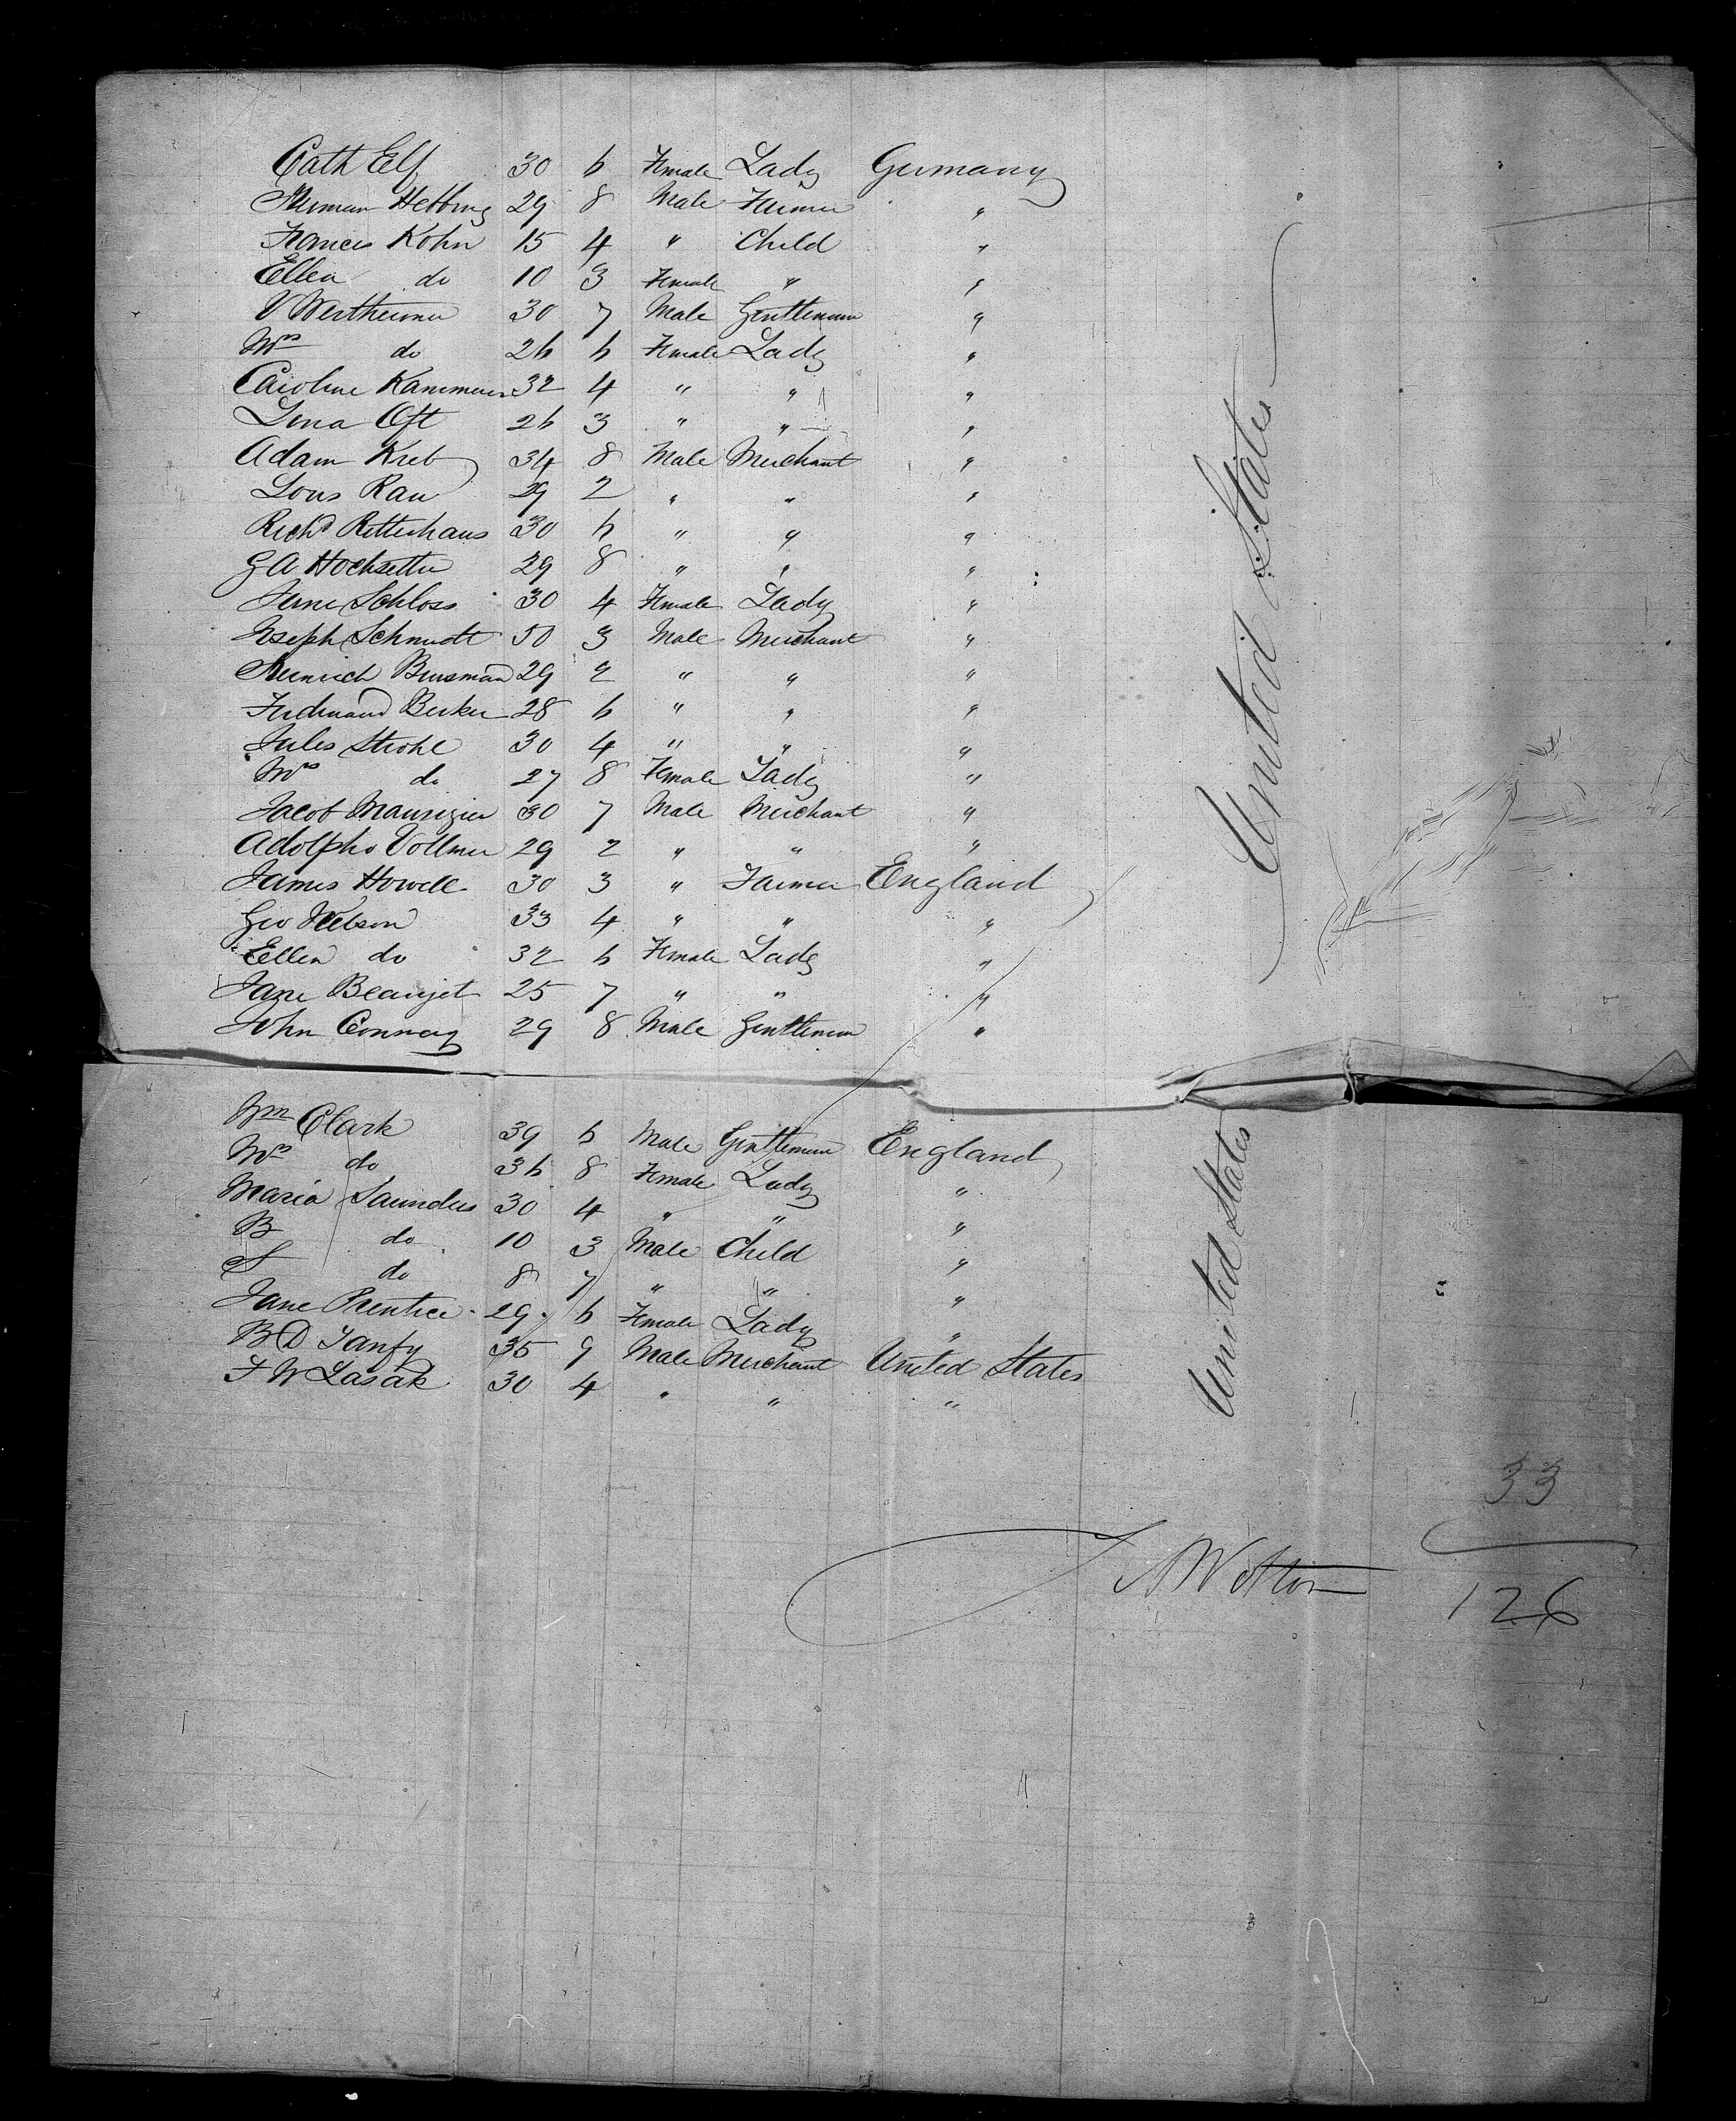 Cath Elf 30 6 Female Lady Germany
Herman Hebbing 29 8 Male Farmer "
Frances Kohn 15 4 " Child "
Ellen do 10 3 Female " "
V Wertheimer 30 7 Male Gentleman "
Mrs do 26 6 Female Lady "
Caroline Kammerer 32 4 " " "
Lena Oft 26 3 " " "
Adam Kreb 34 8 Male Merchant "
Lous Rau 29 2 " " "
Richd Ritterhaus 30 6 " " "
G A Hochsetter 29 8 " " "
Jane Schloss 30 4 Female Lady "
Joseph Schmidt 50 3 Male Merchant "
Heinrich Busman 29 2 " " "
Ferdinand Berker 28 6 " " "
Jules Strohl 30 4 " " "
Mrs do 27 8 Female Lady "
Jacob Maurizier 30 7 Male Merchant "
Adolpho Vollmer 29 2 " " "
James Howell 30 3 " Farmer England
Geo Nelson 33 4 " " "
Ellen do 32 6 Female Lady "
Jane Beaujet 25 7 " " "
John Conway 29 8 Male Gentleman "
United States
Wm Clark 39 6 Male Gentleman England
Mrs do 36 8 Female Lady "
Maria Saunders 30 4 " " "
B do 10 3 Male Child "
S do 8 7 " " "
Jane Prentice 29 6 Female Lady "
B D 35 9 Male Merchant United States
F W Lasak 30 4 " " "
United States
33
126